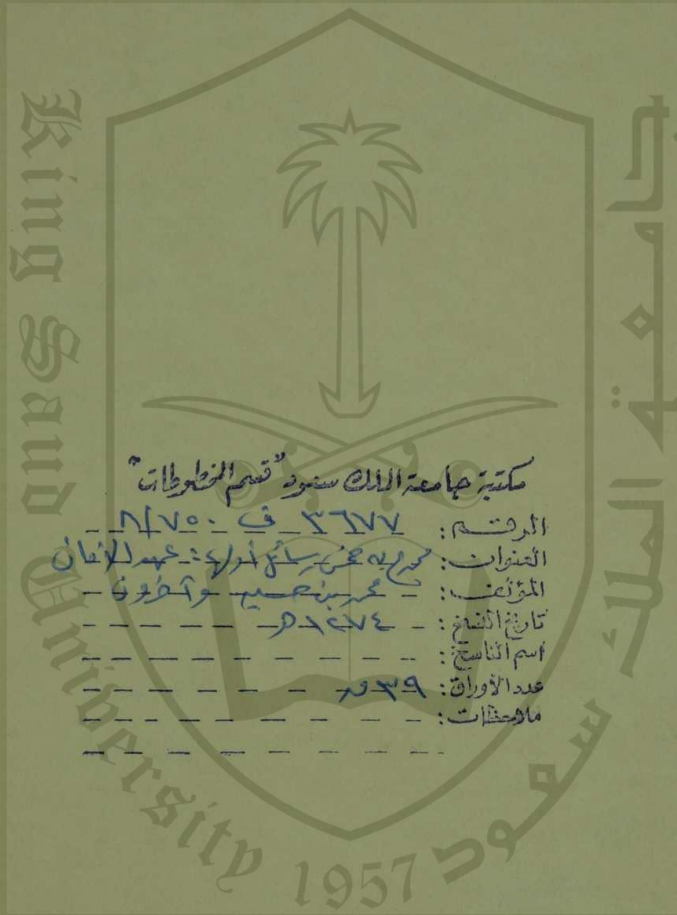 King Saud University 1957
جامعة الملك سعود
مكتبة جامعة الملك سعود "قسم المخطوطات"
الرقم: ٣٦٧٧ ف ٧٥٠/٨
العنوان: رسائل أولها:
المؤلف: محمد بن حسين وآخرون
تاريخ النسخ: ١٢٧٤هـ
اسم الناسخ:
عدد الأوراق: ٣٩
ملاحظات: